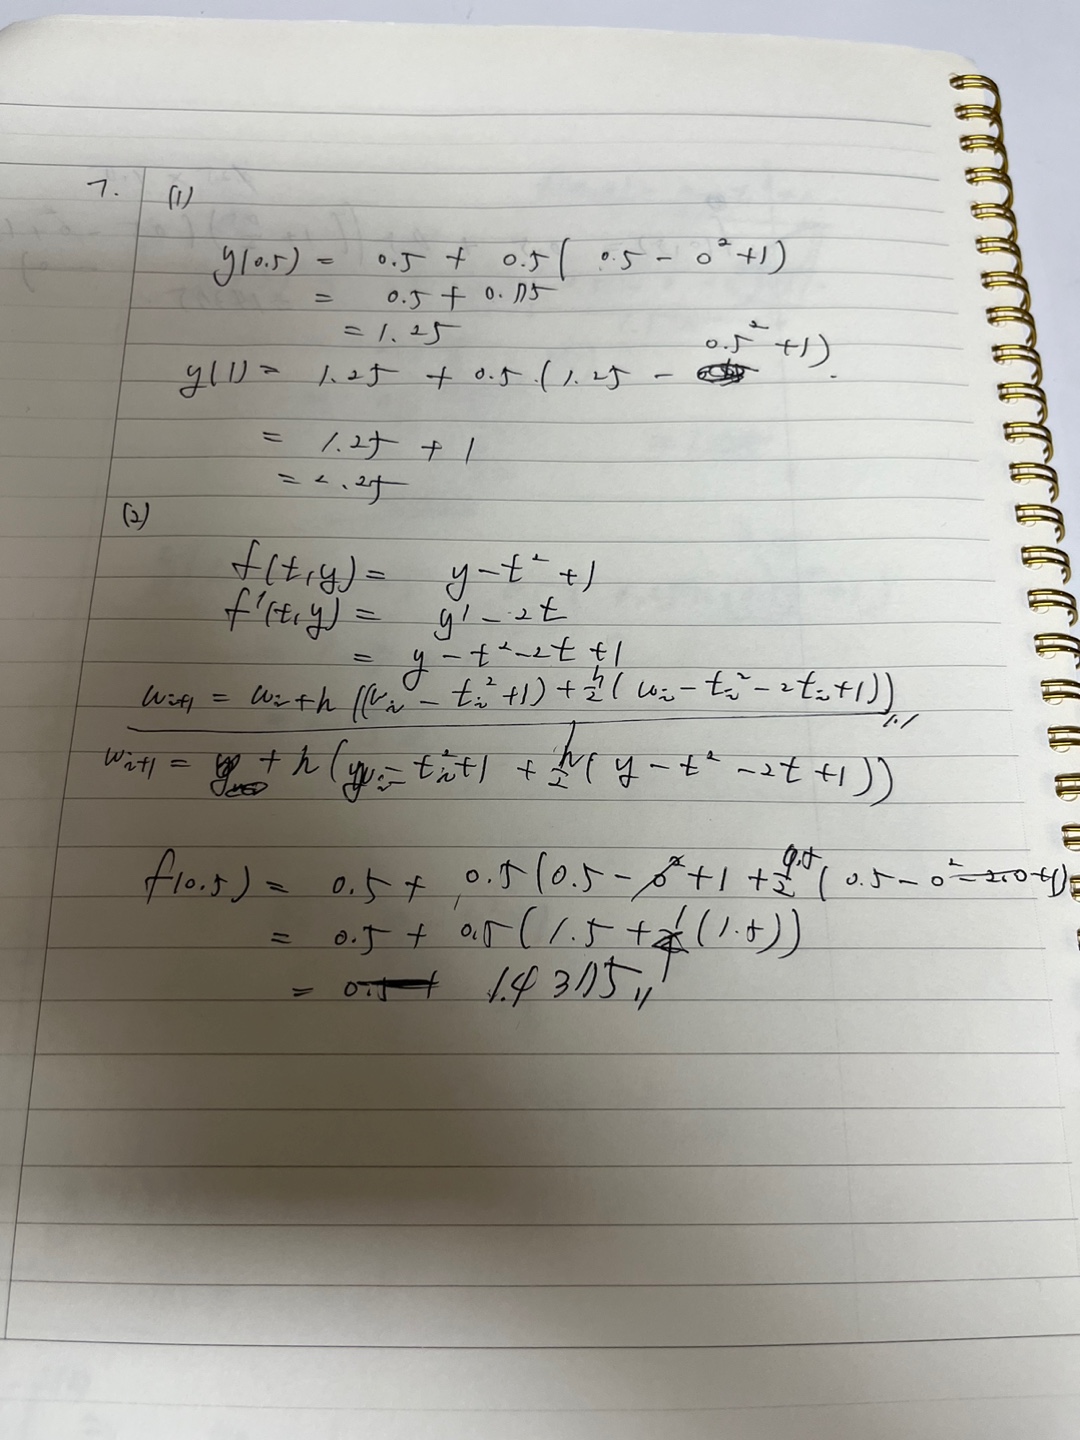 7. (1)
y(0.5) = 0.5 + 0.5( 0.5 - 0² + 1)
= 0.5 + 0.75
= 1.25
y(1) = 1.25 + 0.5 (1.25 - 0.5² + 1)
= 1.25 + 1
= 2.25
(2)
f(t,y) = y - t² + 1
f'(t,y) = y' - 2t
= y - t² - 2t + 1
wi+1 = wi + h ((wi - ti² + 1) + h/2 (wi - ti² - 2ti + 1))
wi+1 = + h ( ti² + 1 + h/2 ( y - t² - 2t + 1))
f(0.5) = 0.5 + 0.5 (0.5 - 0² + 1 + 0.5/2 (0.5 - 0² - 2.0 + 1)
= 0.5 + 0.5 ( 1.5 + (1.5))
= 1.4375